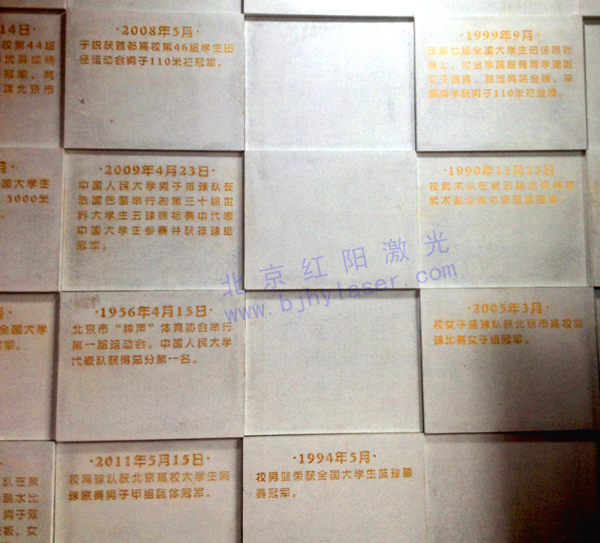 14日
校第44届
优异成绩
冠军。
北京市
·2008年5月·
于锐获首都高校第46届学生田
径运动会男子110米栏冠军。
·1999年9月·
在第七届全国大学生田径锦标
赛上,
男子110米栏金牌。
月·
国大学生
5000米
·2009年4月23日·
中国人民大学男子排球队在
法国巴黎举行的第三十届世
界大学生五球锦标赛中代表
中国大学生参赛并获排球组
冠军。
·1990年11月25日·
校武术队在第五届北京高校
北京红阳激光
www.bjhylaser.com
全国大学
军。
·1956年4月15日·
北京市“钟声”体育协会举行
第一届运动会,中国人民大学
代表队获得总分第一名。
·2005年3月·
校女子篮球队获北京市高校篮
球比赛女子组冠军。
队在第
跟木比
男子双
板,女
·2011年5月15日·
校网球队获北京高校大学生网
球联赛男子甲组团体冠军。
·1994年5月·
校男篮荣获全国大学生篮球联
赛冠军。